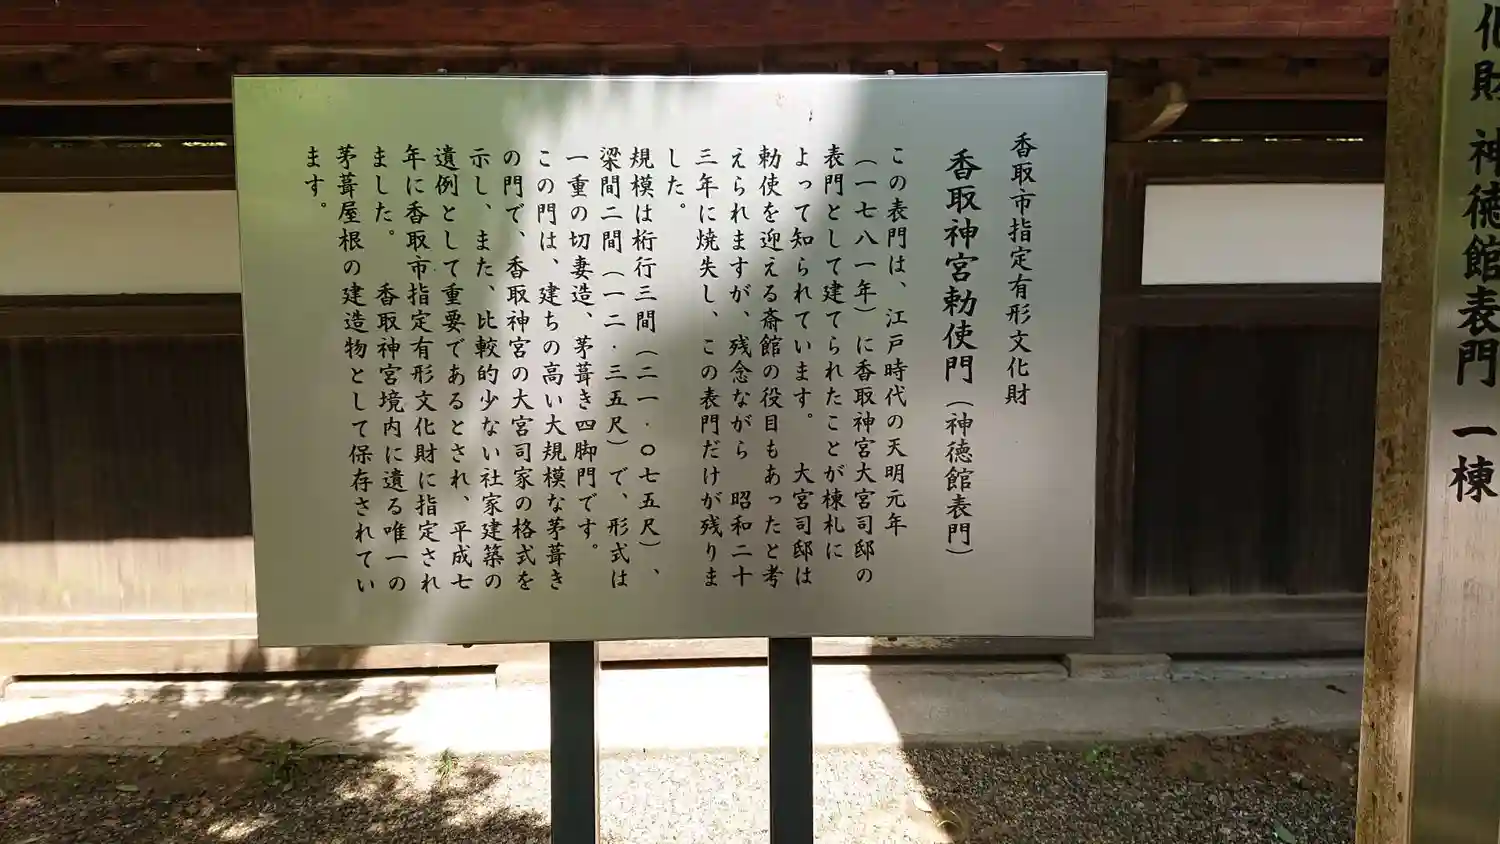 化財 神徳館表門 一棟
香取市指定有形文化財
香取神宮勅使門(神徳館表門)
この表門は、江戸時代の天明元年
(一七八一年)に香取神宮大宮司邸の
表門として建てられたことが棟札に
よって知られています。 大宮司邸は
勅使を迎える斎館の役目もあったと考
えられますが、残念ながら 昭和二十
三年に焼失し、この表門だけが残りま
した。
規模は桁行三間(二一.〇七五尺)、
梁間二間(一二.三五尺)で、形式は
一重の切妻造、茅葺き四脚門です。
この門は、建ちの高い大規模な茅葺き
の門で、香取神宮の大宮司家の格式を
示し、また、比較的少ない社家建築の
遺例として重要であるとされ、平成七
年に香取市指定有形文化財に指定され
ました。 香取神宮境内に遺る唯一の
茅葺屋根の建造物として保存されてい
ます。